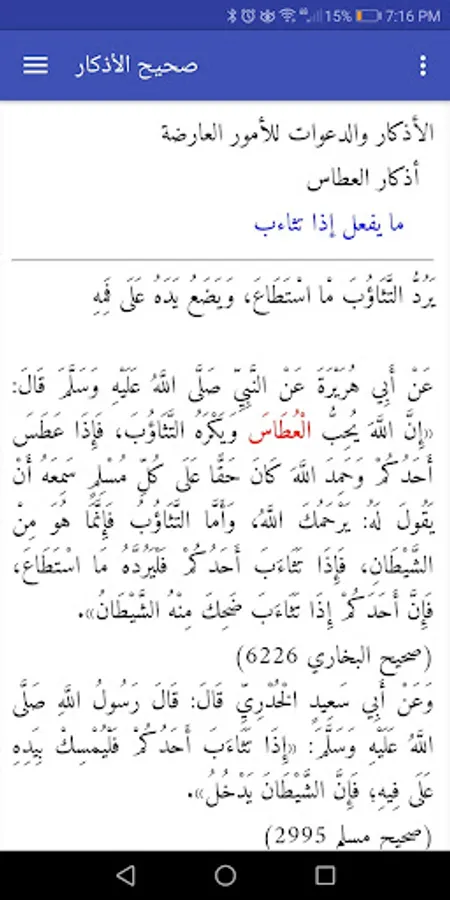 15% 7:16 PM
صحيح الأذكار
الأذكار والدعوات للأمور العارضة
أذكار العطاس
ما يفعل إذا تثاءب
يَرُدُّ التَّثَاؤُبَ مْا اسْتَطَاعَ، وَيَضَعُ يَدَهُ عَلَى فَمِهِ
عَنْ أَبِي هُرَيْرَةَ عَنْ النَّبِيِّ صَلَّى اللَّهُ عَلَيْهِ وَسَلَّمَ قَالَ:
«إِنَّ اللَّهَ يُحِبُّ الْعُطَاسَ وَيَكْرَهُ التَّثَاؤُبَ، فَإِذَا عَطَسَ
أَحَدُكُمْ وَحَمِدَ اللَّهَ كَانَ حَقًّا عَلَى كُلِّ مُسْلِمٍ سَمِعَهُ أَنْ
يَقُولَ لَهُ: يَرْحَمُكَ اللَّهُ، وَأَمَّا التَّثَاؤُبُ فَإِنَّمَا هُوَ مِنْ
الشَّيْطَانِ، فَإِذَا تَثَاءَبَ أَحَدُكُمْ فَلْيَرُدَّهُ مَا اسْتَطَاعَ،
فَإِنَّ أَحَدَكُمْ إِذَا تَثَاءَبَ ضَحِكَ مِنْهُ الشَّيْطَانُ».
(صحيح البخاري 6226)
وَعَنْ أَبِي سَعِيدٍ الْخُدْرِيِّ قَالَ: قَالَ رَسُولُ اللَّهِ صَلَّى
اللَّهُ عَلَيْهِ وَسَلَّمَ: «إِذَا تَثَاءَبَ أَحَدُكُمْ فَلْيُمْسِكْ بِيَدِهِ
عَلَى فِيهِ؛ فَإِنَّ الشَّيْطَانَ يَدْخُلُ».
(صحيح مسلم 2995)